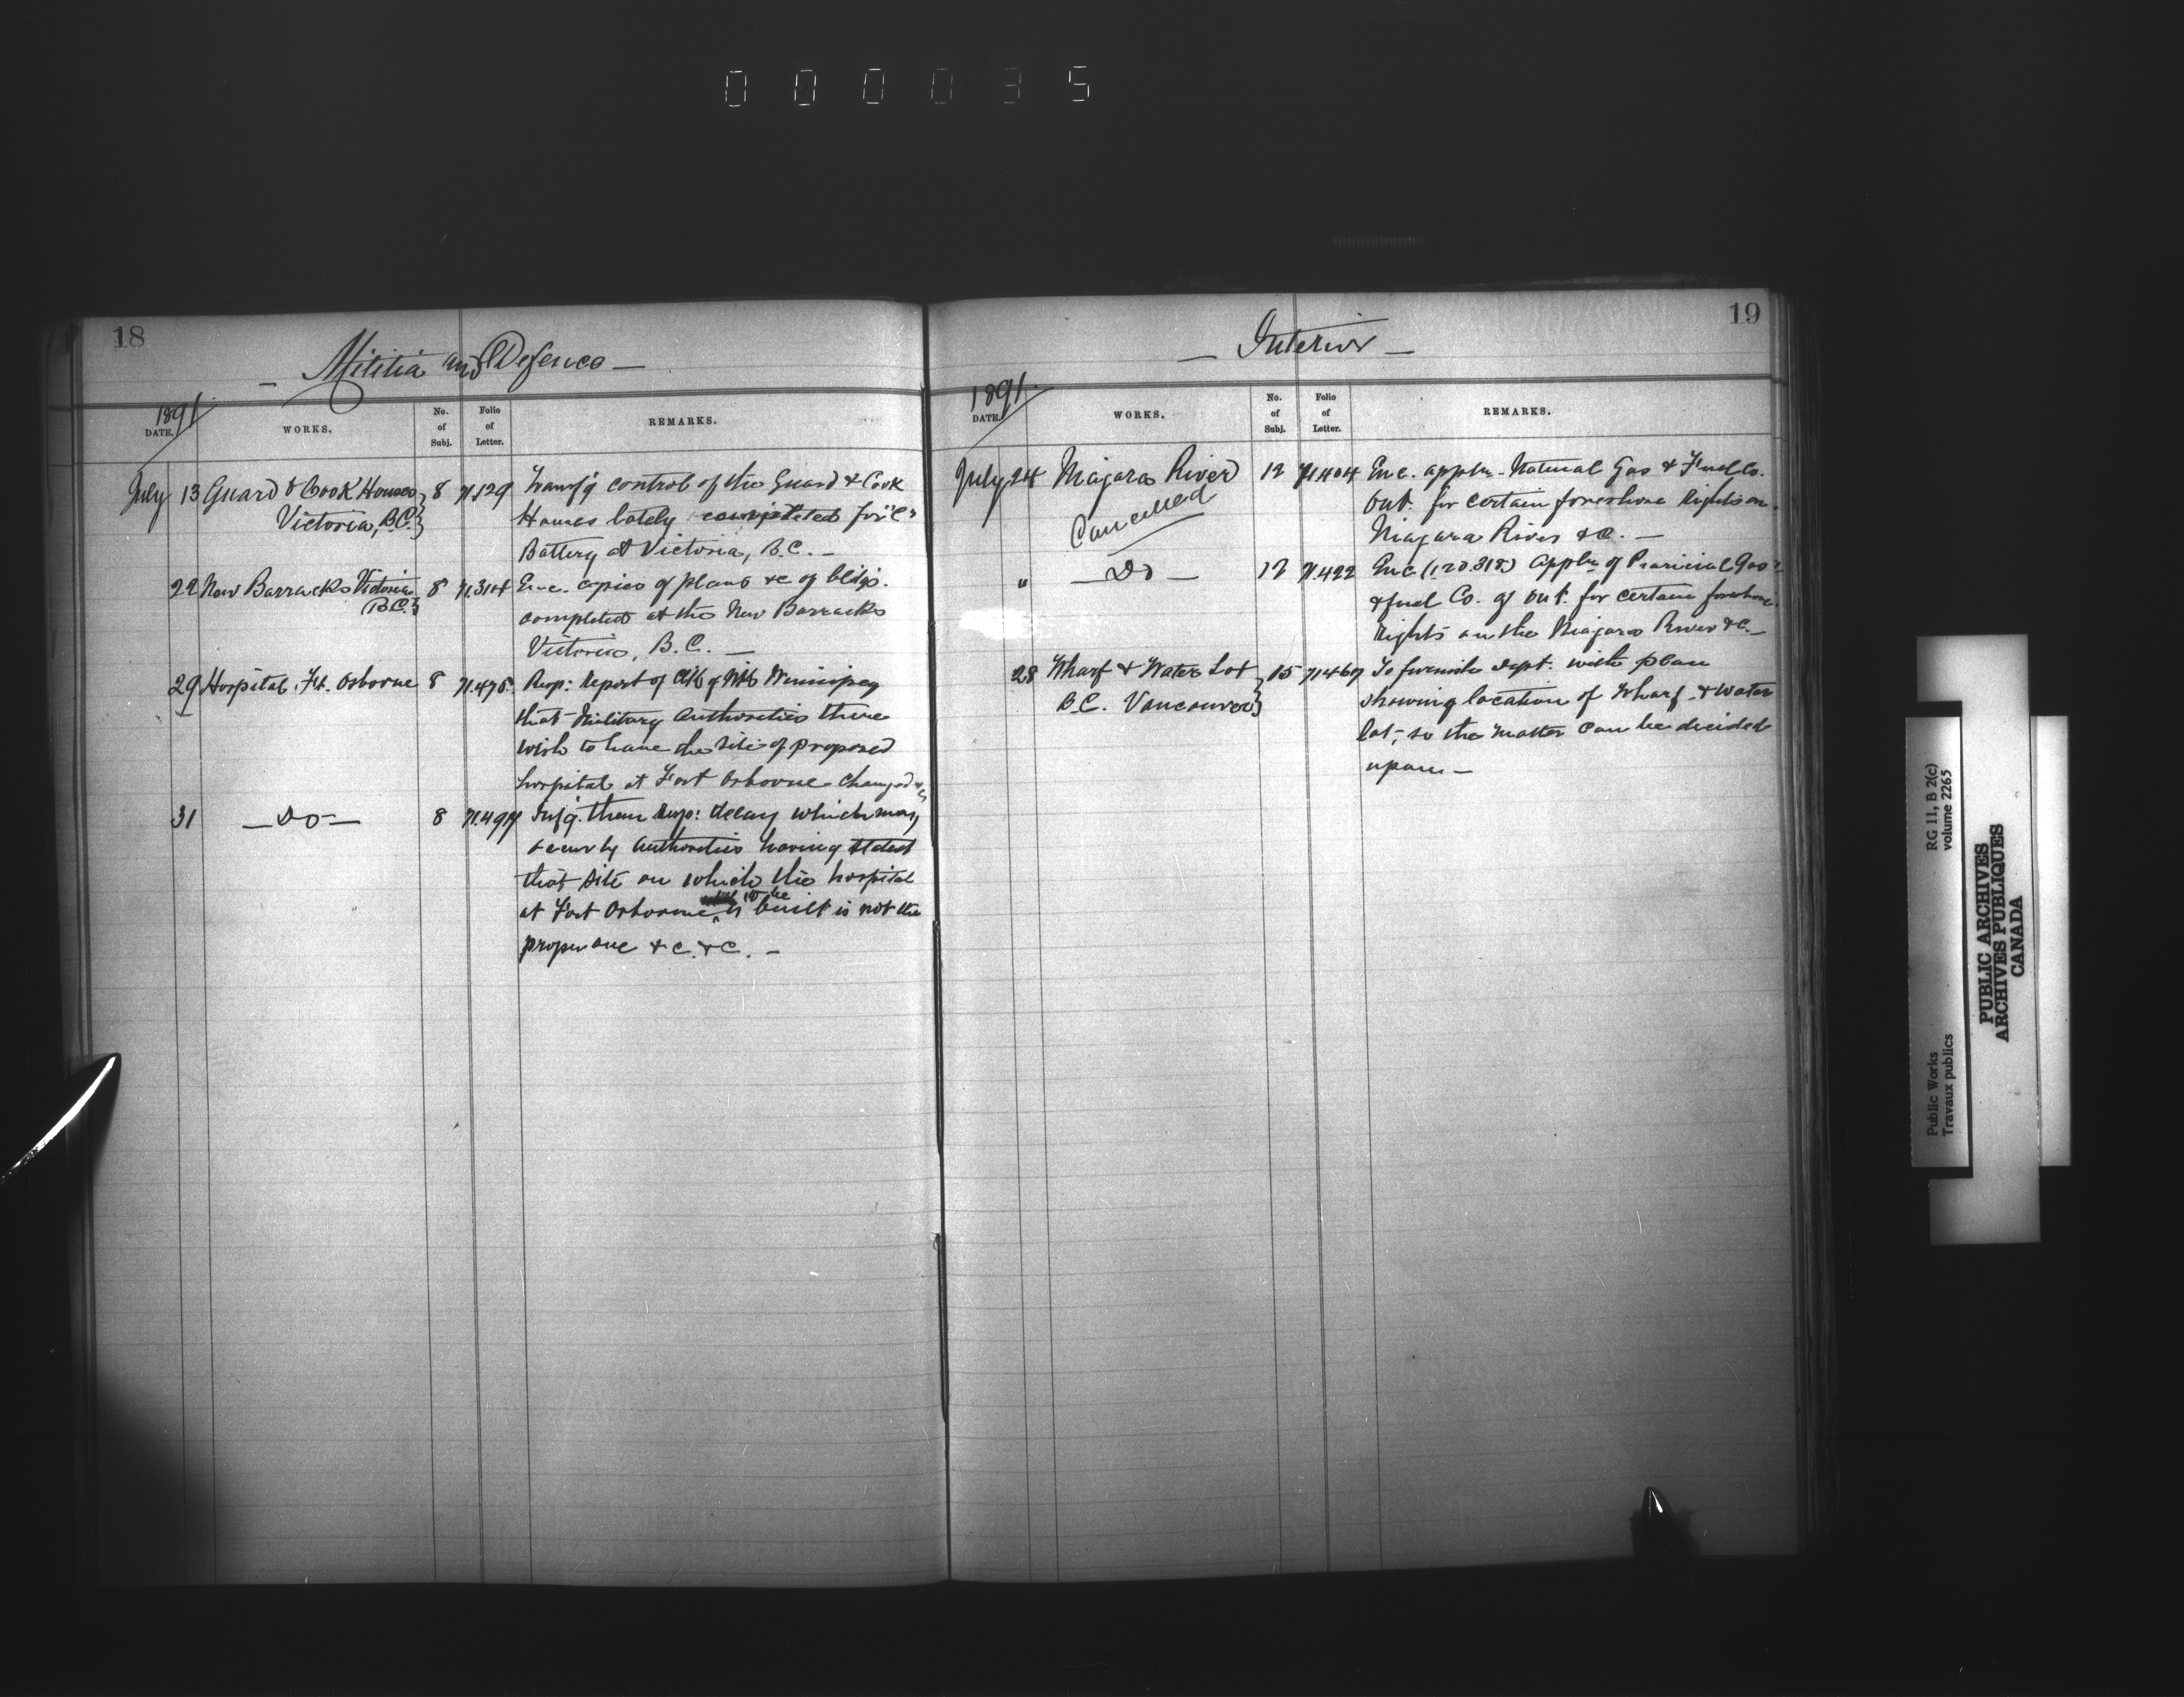 000035
18
— Militia and Defence —
1891
DATE.
WORKS.
No. of Subj.
Folio of Letter.
REMARKS.
July 13 Guard & Cook Houses 8 71.129 Transf'g control of the Guard & Cook
Victoria, B.C. Houses lately completed for "C"
Battery at Victoria, B.C. —
22 New Barracks Victoria 8 71.314 Enc. copies of plans &c of bldgs.
B.C. completed at the New Barracks
Victoria, B.C. —
29 Hospital, Ft. Osborne 8 71.475 Resp: Report of of Winnipeg
that Military Authorities there
wish to have the site of proposed
hospital at Fort Osborne changed &c
31 — Do — 8 Inf'g. them resp: delay which may
occur by Authorities having stated
that site on which the hospital
at Fort Osborne is to be built is not the
proper one &c. &c. —
19
— Interior —
1891
DATE.
WORKS.
No. of Subj.
Folio of Letter.
REMARKS.
July 24 Niagara River 12 71404 Enc. appln. Natural Gas & Fuel Co.
Cancelled Ont. for certain foreshore rights on
Niagara River &c. —
" — Do — 12 71.422 Enc (120.318) Appln of Provincial Gas
& fuel Co. of Ont. for certain foreshore
rights on the Niagara River &c —
28 Wharf & Water Lot 15 71467 To furnish Dept. with plan
B.C. Vancouver showing location of Wharf & Water
lot, so the matter can be decided
upon —
RG 11, B 2(c)
volume 2265
Public Works
Travaux publics
PUBLIC ARCHIVES
ARCHIVES PUBLIQUES
CANADA